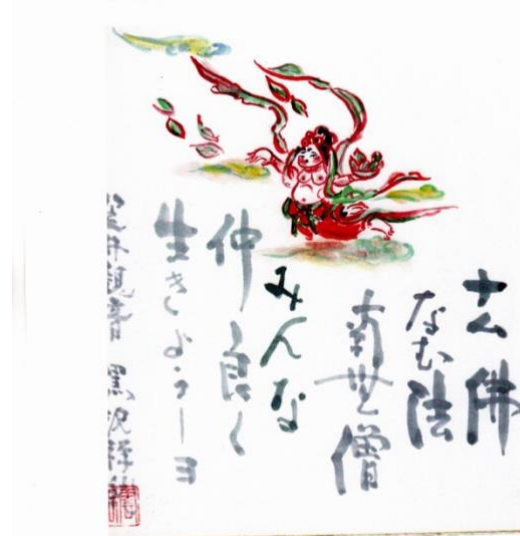 ナム佛
なむ法
南無僧
みんな
仲良く
生きようーヨ
観音 黒沢